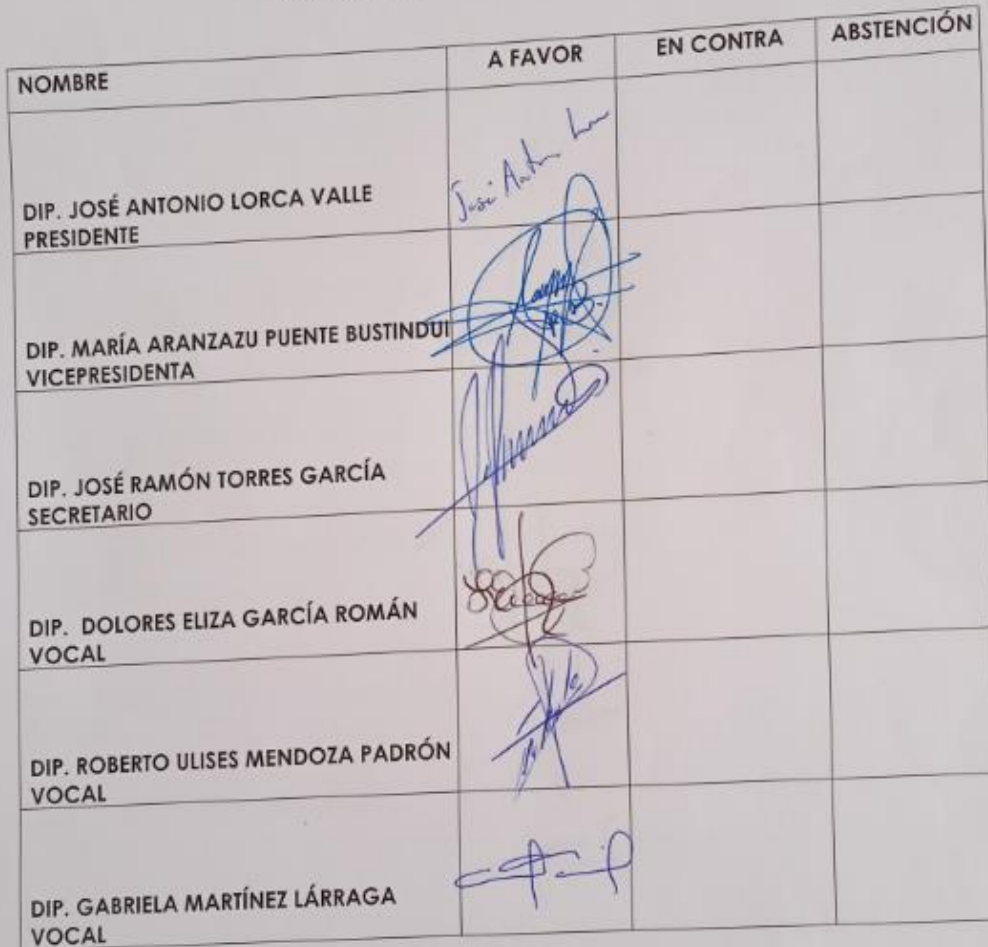 NOMBRE A FAVOR EN CONTRA ABSTENCIÓN
DIP. JOSÉ ANTONIO LORCA VALLE
PRESIDENTE
José Antn
DIP. MARÍA ARANZAZU PUENTE BUSTINDUI
VICEPRESIDENTA
DIP. JOSÉ RAMÓN TORRES GARCÍA
SECRETARIO
DIP. DOLORES ELIZA GARCÍA ROMÁN
VOCAL
DIP. ROBERTO ULISES MENDOZA PADRÓN
VOCAL
DIP. GABRIELA MARTÍNEZ LÁRRAGA
VOCAL